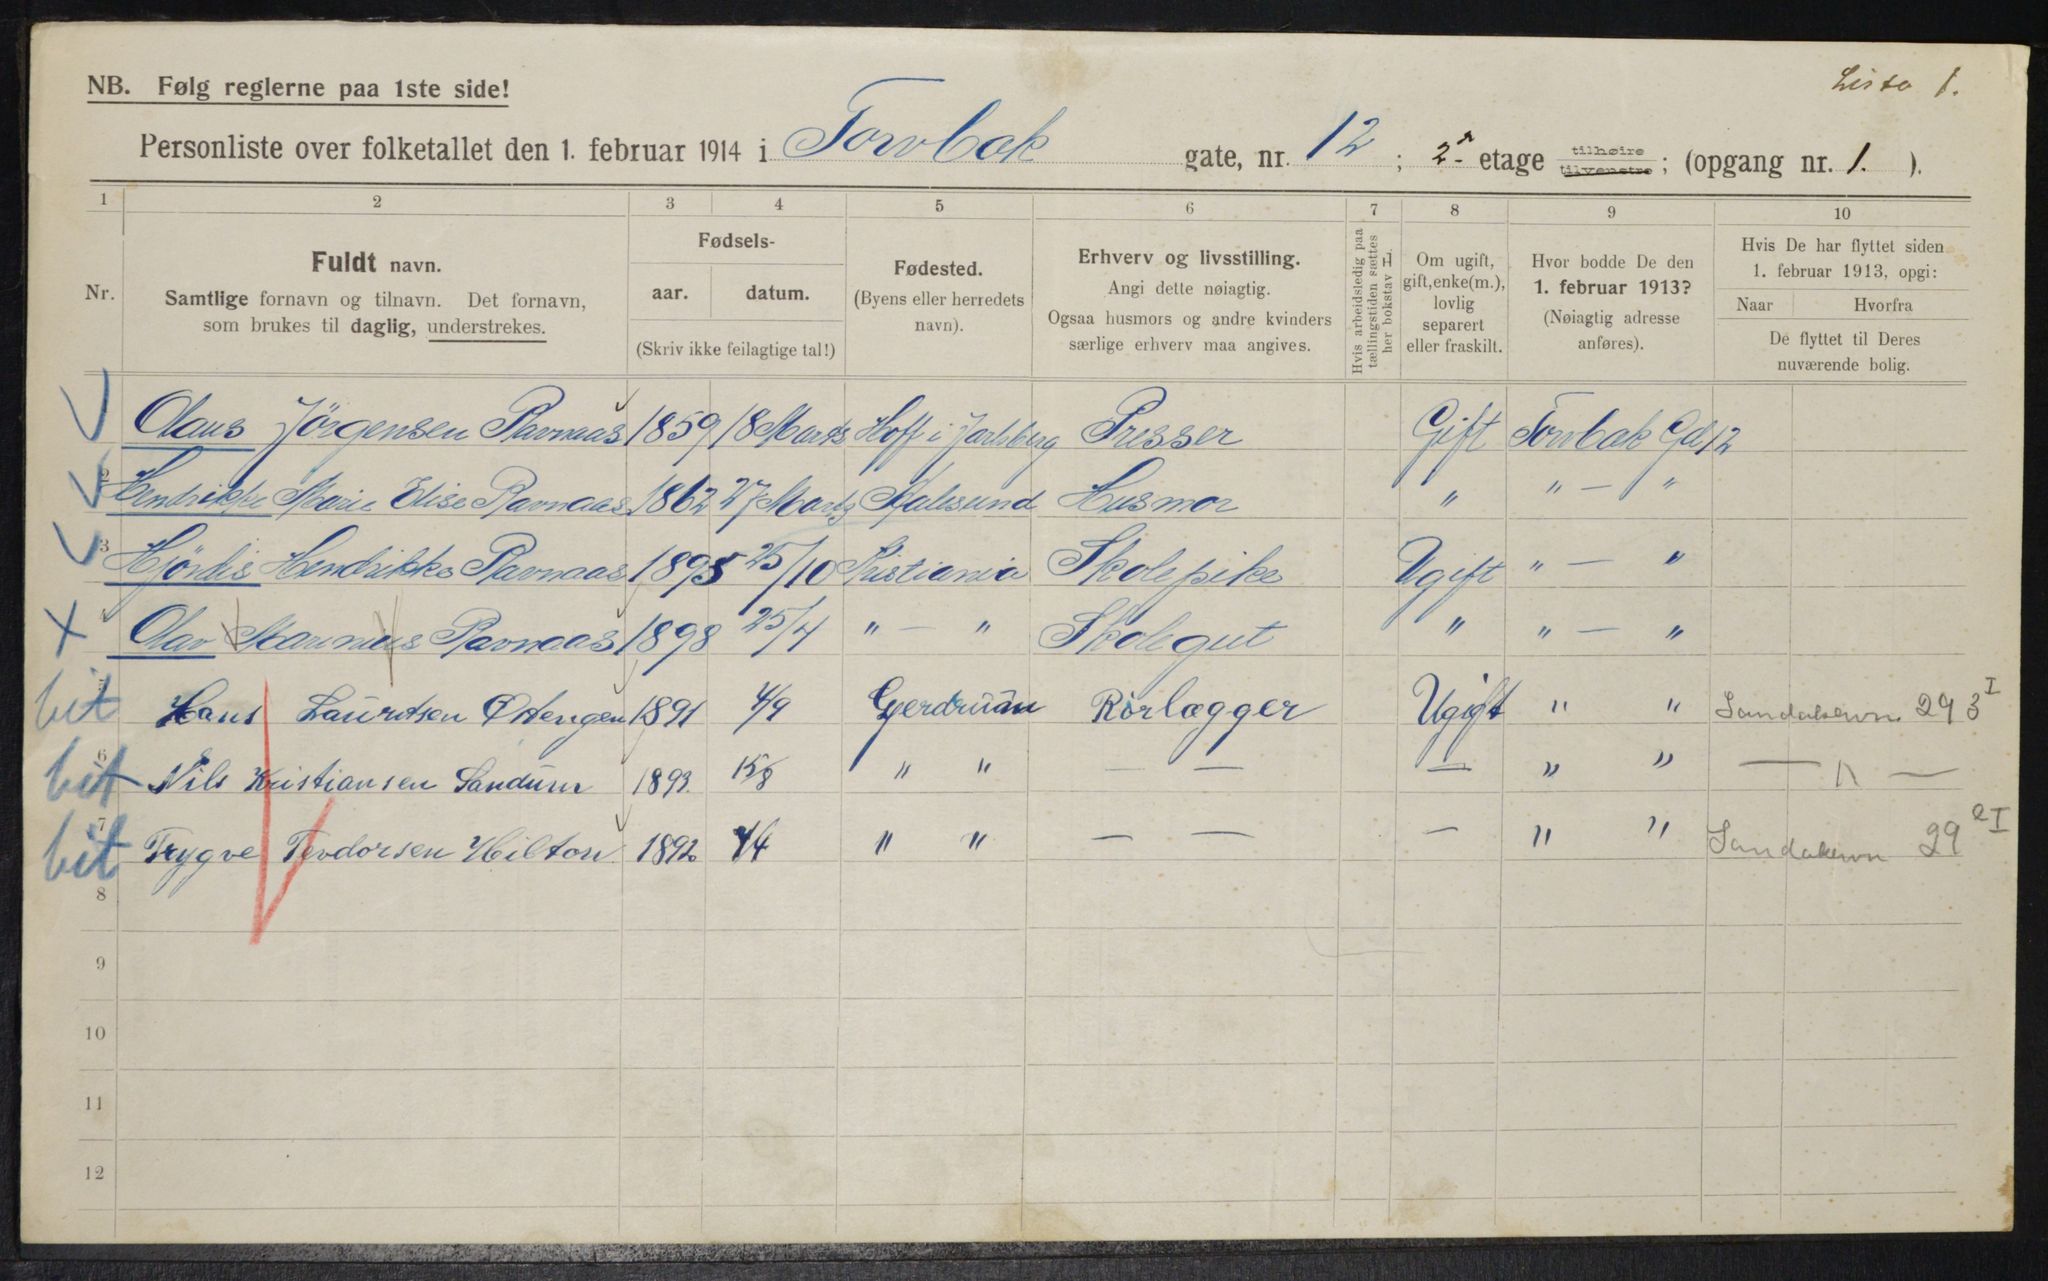 Liste 1.
NB. Følg reglerne paa 1ste side!
Personliste over folketallet den 1. februar 1914 i Torvbak gate, nr. 12 ; 2. etage tilhøire tilvenstre ; (opgang nr. 1. ).
1 2 3 4 5 6 7 8 9 10
Nr.
Fuldt navn.
Samtlige fornavn og tilnavn. Det fornavn,
som brukes til daglig, understrekes.
Fødsels-
aar. datum.
(Skriv ikke feilagtige tal!)
Fødested.
(Byens eller herredets
navn).
Erhverv og livsstilling.
Angi dette nøiagtig.
Ogsaa husmors og andre kvinders
særlige erhverv maa angives.
Hvis arbeidsledig paa
tællingstiden sættes
her bokstav L.
Om ugift,
gift, enke(m.),
lovlig
separert
eller fraskilt.
Hvor bodde De den
1. februar 1913?
(Nøiagtig adresse
anføres).
Hvis De har flyttet siden
1. februar 1913, opgi:
Naar Hvorfra
De flyttet til Deres
nuværende bolig.
Olaus Jörgensen Ravnaas 1859 18 Marts Hoff i Jarlsberg Presser Gift Torvbak Gd 12
2 Hendrikke Marie Elise Ravnaas 1862 27 Marts Aalesund Husmor " " — "
3 Hjördis Hendrikke Ravnaas 1895 25/10 Kristiania Skolepike Ugift " — "
4 Olav Maunius Ravnaas 1898 25/4 " — " Skolegut " " — "
bit 5 Hans Lauritsen Østengen 1891 4/9 Gjerdrum Rørlægger Ugift " " Sandakervn 29 3 I
bit 6 Nils Kristiansen Sandum 1893 15/8 " " — — — " " — " —
bit 7 Trygve Tevdorsen Hilton 1892 4/4 " " — — — " " Sandakervn 29 2 I
8
9
10
11
12